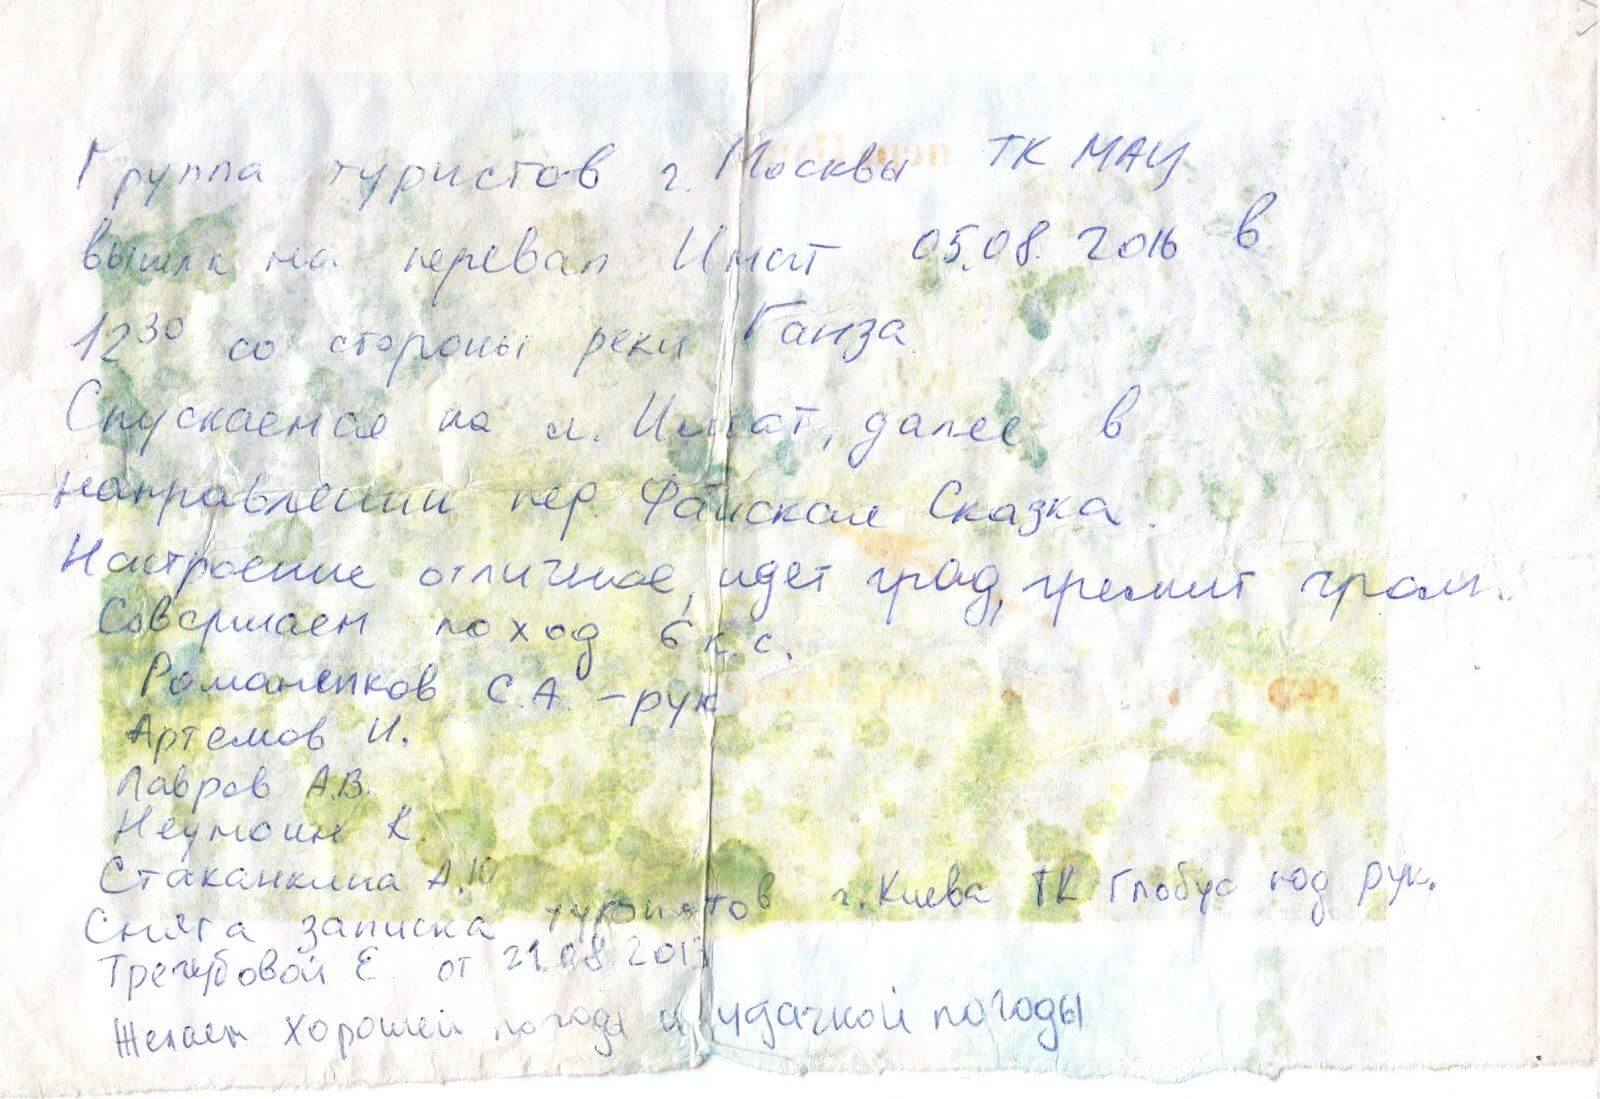 Группа туристов г. Москвы ТК МАИ
вышла на перевал Имат 05.08.2016 в
12³⁰ со стороны реки Ганза
Спускаемся на л. Имат, далее в
направлении пер. Файская Сказка.
Настроение отличное, идет град, гремит гром.
Совершаем поход 6 к.с.
Романенков С.А. – рук
Артемов И.
Лавров А.В.
Неумоин К.
Стаканкина А.Ю
Снята записка туристов г. Киева ТК Глобус под рук.
Трегубовой Е. от 21.08.2013
Желаем хорошей погоды и удачной погоды